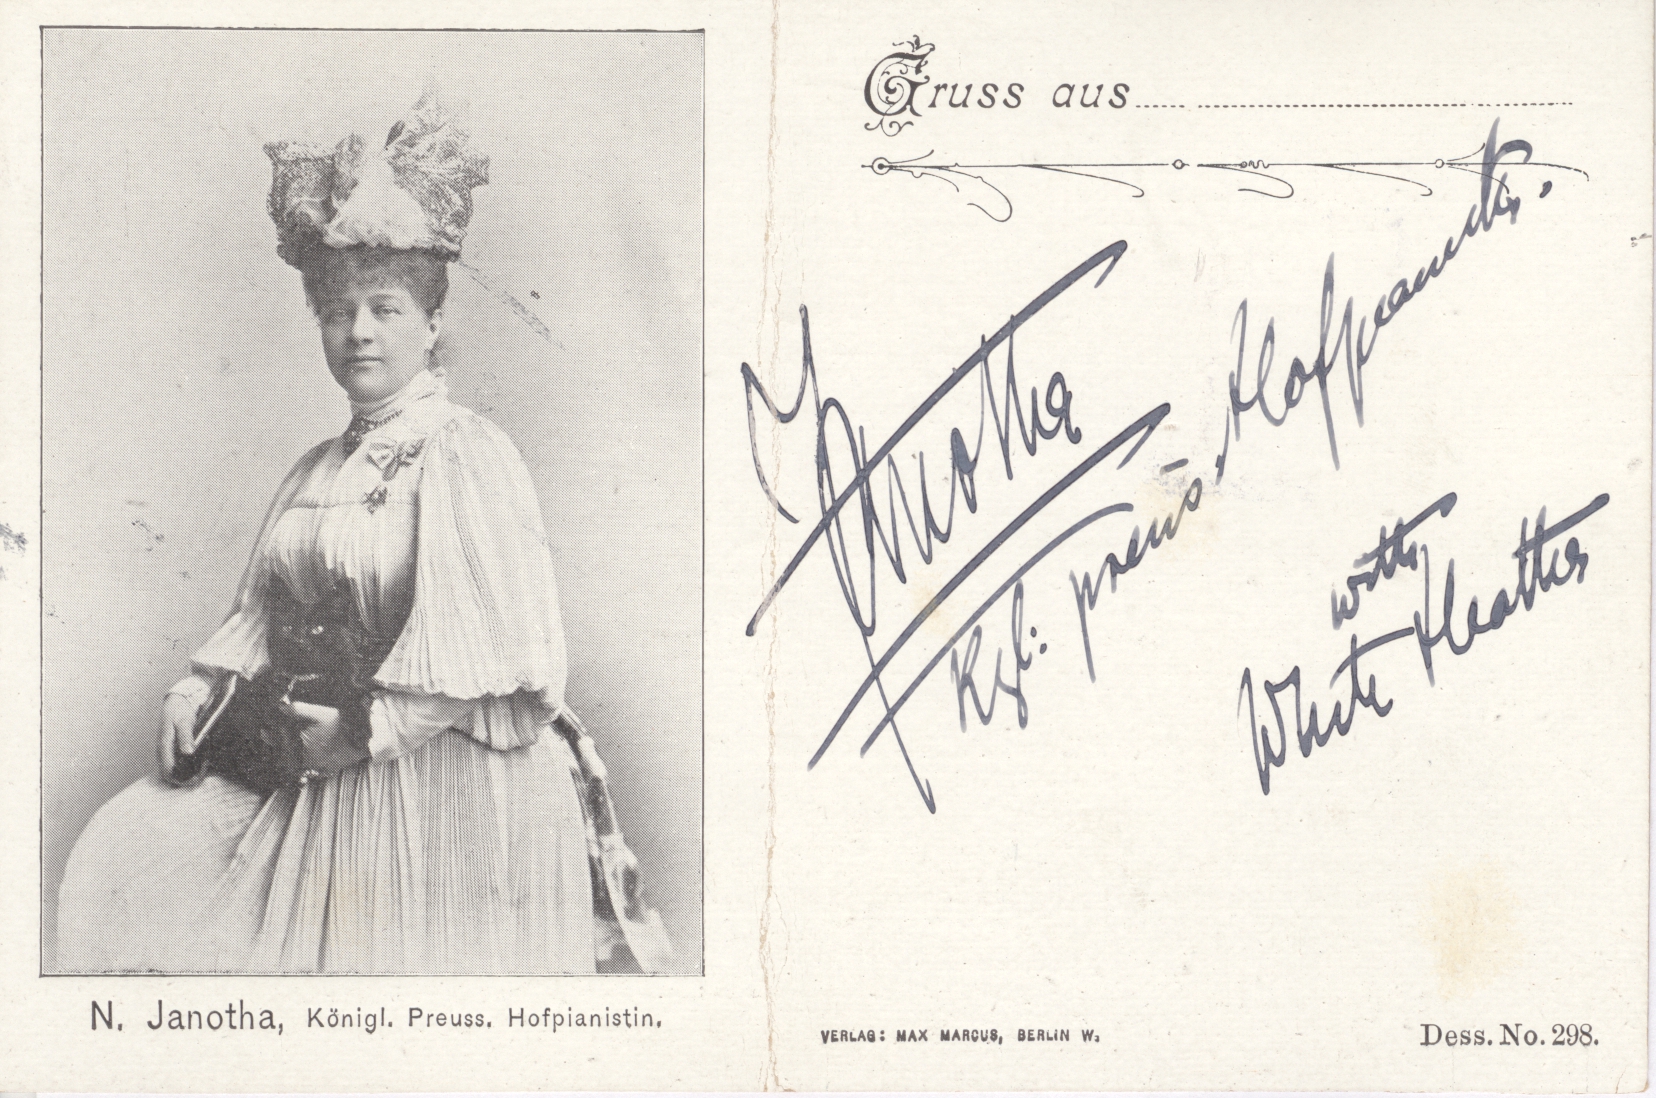 Gruss aus
Janotha
Kgl: preus. Hofpianistin.
with
White Heather
N. Janotha, Königl. Preuss. Hofpianistin.
VERLAG: MAX MARCUS, BERLIN W.
Dess. No. 298.